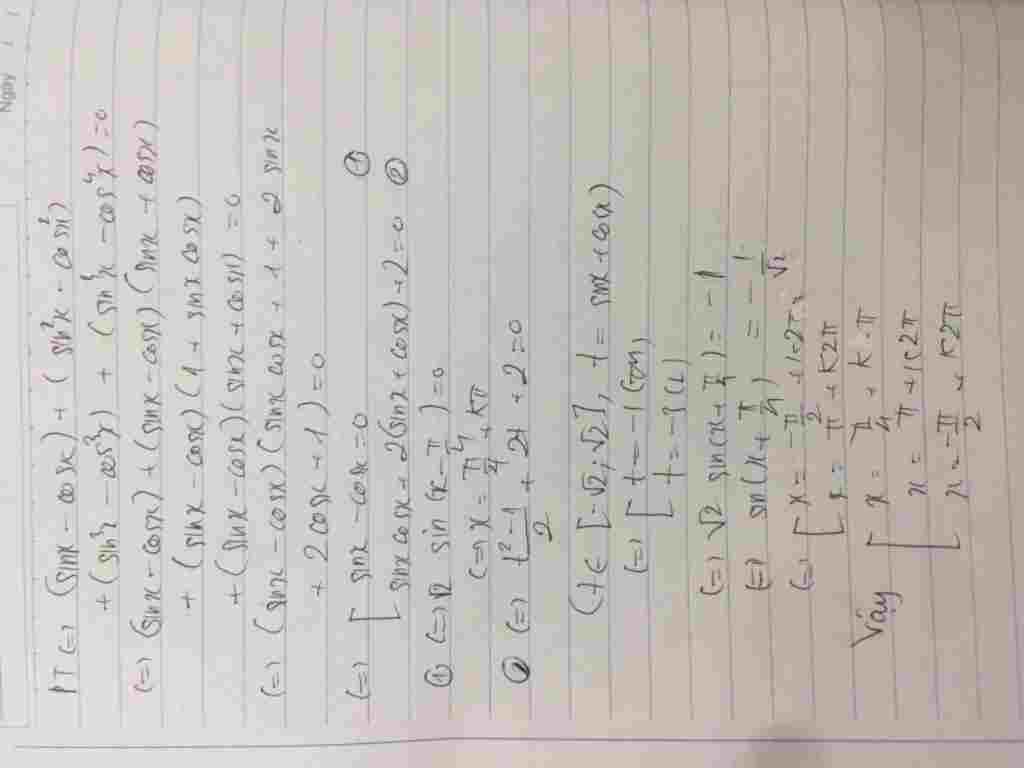 Ngày
PT (=) (sinx - cosx) + (sin²x - cos²x)
+ (sin³x - cos³x) + (sin⁴x - cos⁴x) = 0
(=) (sinx - cosx) + (sinx - cosx)(sinx + cosx)
+ (sinx - cosx)(1 + sinx cosx)
+ (sinx - cosx)(sinx + cosx) = 0
(=) (sinx - cosx)(sinx cosx + 1 + 2 sinx
+ 2cosx + 1) = 0
(=) [ sinx - cosx = 0 ①
[ sinx cosx + 2(sinx + cosx) + 2 = 0 ②
① (=) √2 sin(x - π/4) = 0
(=) x = π/4 + kπ
② (=) (t² - 1)/2 + 2t + 2 = 0
(t ∈ [-√2; √2], t = sinx + cosx)
(=) [ t = -1 (TM)
[ t = -3 (L)
(=) √2 sin(x + π/4) = -1
(=) sin(x + π/4) = -1/√2
(=) [ x = -π/2 + k2π
[ x = π + k2π
Vậy [ x = π/4 + k.π
x = π + k2π
[ x = -π/2 + k2π